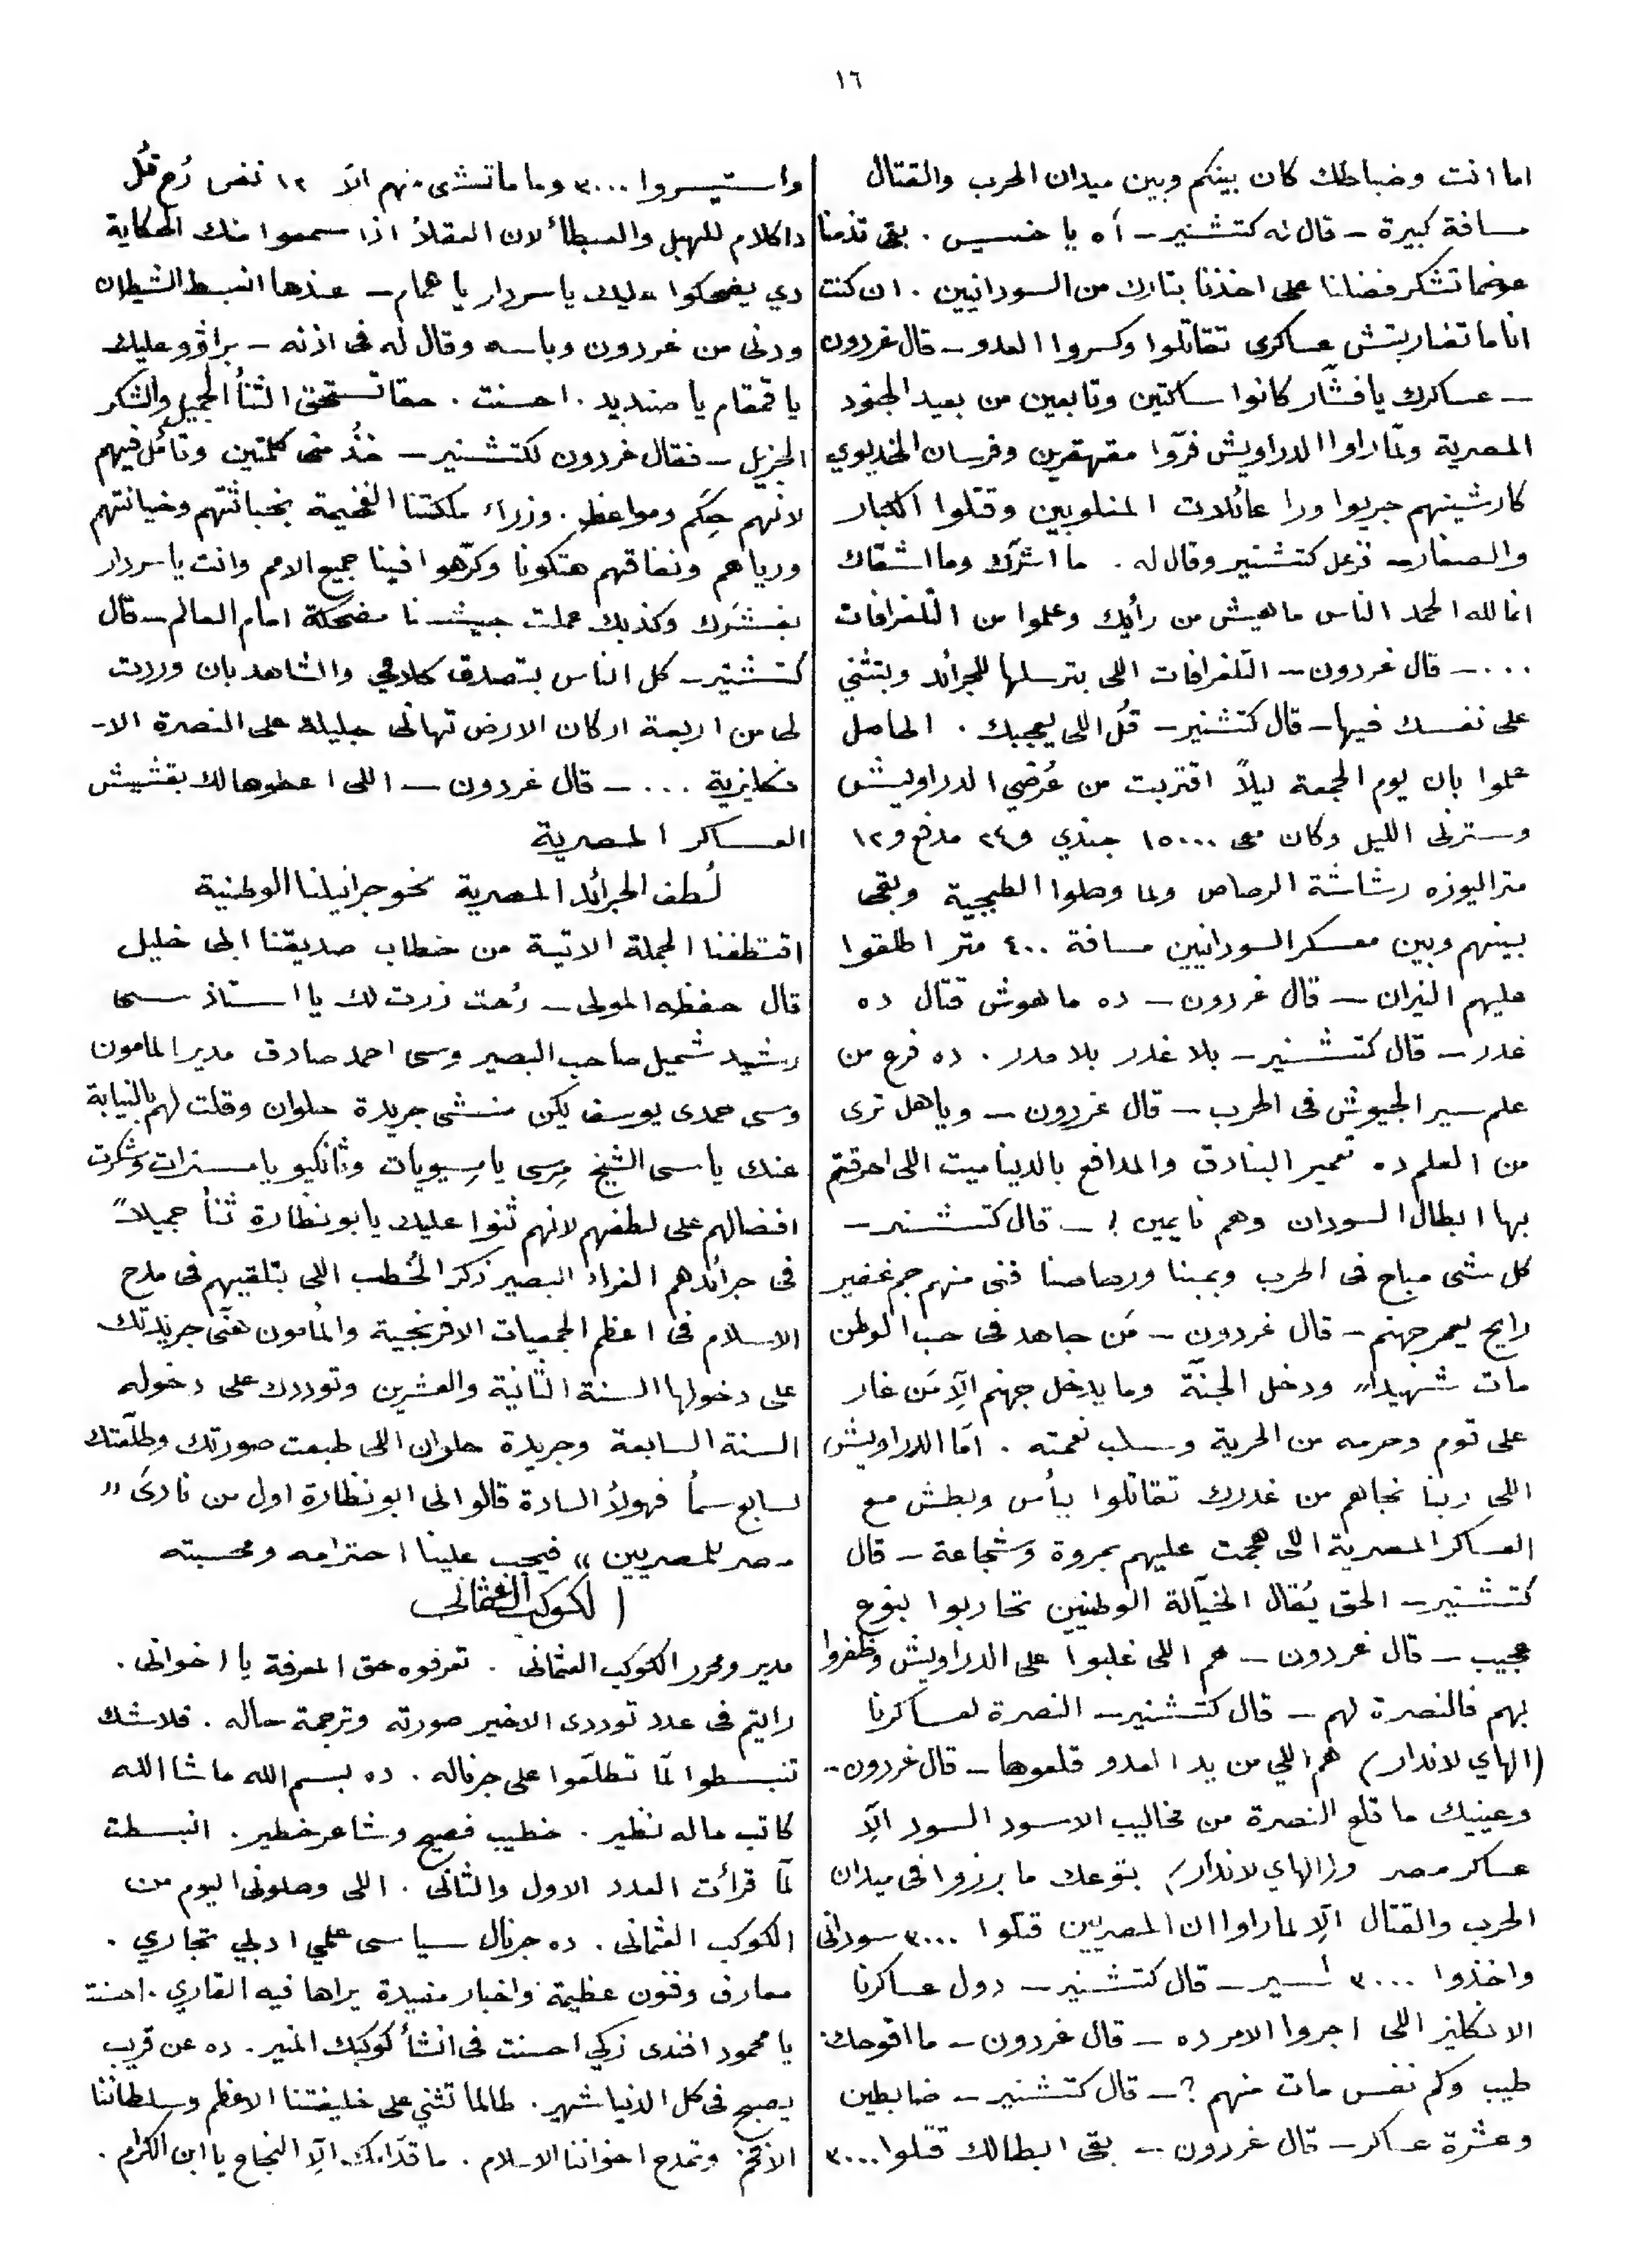 ١٦
اما انت وضباطك كان بينكم وبين ميدان الحرب والقتال
مسافة كبيرة – قال له كتشنير – اه يا خسيس . بقى تذمنا
عوضما تشكر فضلنا على اخذنا بتارك من السودانيين . ان كنت
انا ما تضاربتش عساكرى تقاتلوا وكسروا العدو – قال غردون
– عساكرك يا فشّار كانوا ساكتين وتابعين من بعيد الجنود
المصرية ولمّا راوا الدراويش فرّوا مقهقرين وفرسان الخديوي
كارشينهم جريوا ورا عائلات المغلوبين وقتلوا الكبار
والصغار – فزعل كتشنير وقال له . ما اشرّك وما اشقاك
انما لله الحمد الناس ماهيش من رأيك وعلموا من التلغرافات
... – قال غردون – التلغرافات اللى بترسلها للجرائد وبتثني
على نفسك فيها – قال كتشنير – قُل اللى يعجبك . الحاصل
علموا بان يوم الجمعة ليلاً اقتربت من عُرضي الدراويش
وسترنى الليل وكان معى ١٥٠٠٠ جندي و٢٤ مدفع و١٢
متراليوزه رشاشة الرصاص ولما وصلوا الطبجية وبقى
بينهم وبين معسكر السودانيين مسافة ٤٠٠ متر اطلقوا
عليهم النيران – قال غردون – ده ماهوش قتال ده
غدر – قال كتشنير – بلا غدر بلا مدر . ده فرع من
علم سير الجيوش فى الحرب – قال غردون – وياهل ترى
من العلم ده تعمير البنادق والمدافع بالديناميت اللى احرقتم
بها ابطال السودان وهم نايمين ! – قال كتشنير –
كل شى مباح فى الحرب وبمبنا ورصاصنا فنى منهم جم غفير
رايح يعمر جهنم – قال غردون – مَن جاهد فى حب الوطن
مات شهيداً ودخل الجنّة وما يدخل جهنم الّا مَن غار
على قوم وحرمه من الحرية وسلب نعمته . امّا الدراويش
اللى ربنا نجاهم من غدرك تقاتلوا ببأس وبطش مع
العساكر المصرية اللى هجمت عليهم بمروة وشجاعة – قال
كتشنير – الحق يُقال الخيّالة الوطنيين تحاربوا بنوع
عجيب – قال غردون – هم اللى غلبوا على الدراويش وظفروا
بهم فالنصرة لهم – قال كتشنير – النصرة لعساكرنا
(الهاي لاندار) هم اللي من يد العدو قلعوها – قال غردون –
وعينيك ما قلع النصرة من مخاليب الاسود السود الّا
عساكر مصر و(الهاي لاندار) بتوعك ما برزوا فى ميدان
الحرب والقتال الّا لما راوا ان المصريين قتلوا ٣٠٠٠ سودانى
واخذوا ٣٠٠٠ أسير – قال كتشنير – دول عساكرنا
الانكليز اللى اجروا الامر ده – قال غردون – ما اقوحك
طيب وكم نفس مات منهم ؟ – قال كتشنير – ضابطين
وعشرة عساكر – قال غردون – بقى ابطالك قتلوا ٣٠٠٠
واستيسروا ٣٠٠٠ وما ماتشى منهم الّا ١٢ نفس رُح قُل
دا كلام للهبل والبسطأ لان العقلاء اذا سمعوا منك الحكاية
دي يضحكوا عليك يا سردار يا همام – عندها انبسط الشيطان
ودنى من غردون وباسه وقال له فى اذنه – براڤو عليك
يا قمقام يا صنديد . احسنت . حقا تستحق الثنأ الجميل والشكر
الجزيل – فقال غردون لكتشنير – خُذ منى كلمتين وتأمل فيهم
لانهم حِكَم ومواعظ . وزراء ملكتنا الفخيمة بخباثتهم وخيانتهم
ورياهم ونفاقهم هتكونا وكرّهوا فينا جميع الامم وانت يا سردار
بفشَرك وكذبك عملت جيشنا مضحكة امام العالم – قال
كتشنير – كل الناس بتصدق كلامي والشاهد بان وردت
لى من اربعة اركان الارض تهانى جليلة على النصرة الا-
نكليزية ... – قال غردون – اللى اعطوها لك بقشيش
العساكر المصرية
لُطف الجرائد المصرية نحو جرانيلنا الوطنية
اقتطفنا الجملة الاتية من خطاب صديقنا ابى خليل
قال حفظه المولى – رُحت زرت لك يا استاذ سى
رشيد شميل صاحب البصير وسى احمد صادق مدير المامون
وسى حمدى يوسف يكن منشى جريدة حلوان وقلت لهم بالنيابة
عنك يا سى الشيخ مِرسى يا مسيويات وثانكيو يا مسترات وشكرت
افضالهم على لطفهم لانهم ثنوا عليك يابو نظارة ثنأ جميلاً
فى جرائدهم الغراء البصير ذكر الخُطب اللى بتلقيهم فى مدح
الاسلام فى اعظم الجمعيات الافرنجية والمأمون هنّى جريدتك
على دخولها السنة الثانية والعشرين وتوددك على دخوله
السنة السابعة وجريدة حلوان اللى طبعت صورتك وطلّعتك
لسابع سمأ فهولأ السادة قالوا لى ابو نظارة اول من نادى "
مصر للمصريين " فيجب علينا احترامه ومحبته
الكوكب العثمانى
مدير ومحرر الكوكب العثمانى . تعرفوه حق المعرفة يا اخوانى .
رايتم فى عدد توددى الاخير صورته وترجمة حاله . فلاشك
تنبسطوا لمّا تطلّعوا على جرناله . ده بسم الله ماشا الله
كاتب ماله نظير . خطيب فصيح وشاعر خطير . انبسطت
لمّا قرأت العدد الاول والثانى . اللى وصلونى اليوم من
الكوكب العثمانى . ده جرنال سياسى علمي ادبي تجاري .
معارف وفنون عظيمة واخبار مفيدة يراها فيه القاري . احسنت
يا محمود افندى زكي احسنت فى انشأ كوكبك المنير . ده عن قريب
يصبح فى كل الدنيا شهير . طالما تثني على خليفتنا الاعظم وسلطاننا
الافخم وتمدح اخواننا الاسلام . ما قدّامك الّا النجاح يا ابن الكرام .